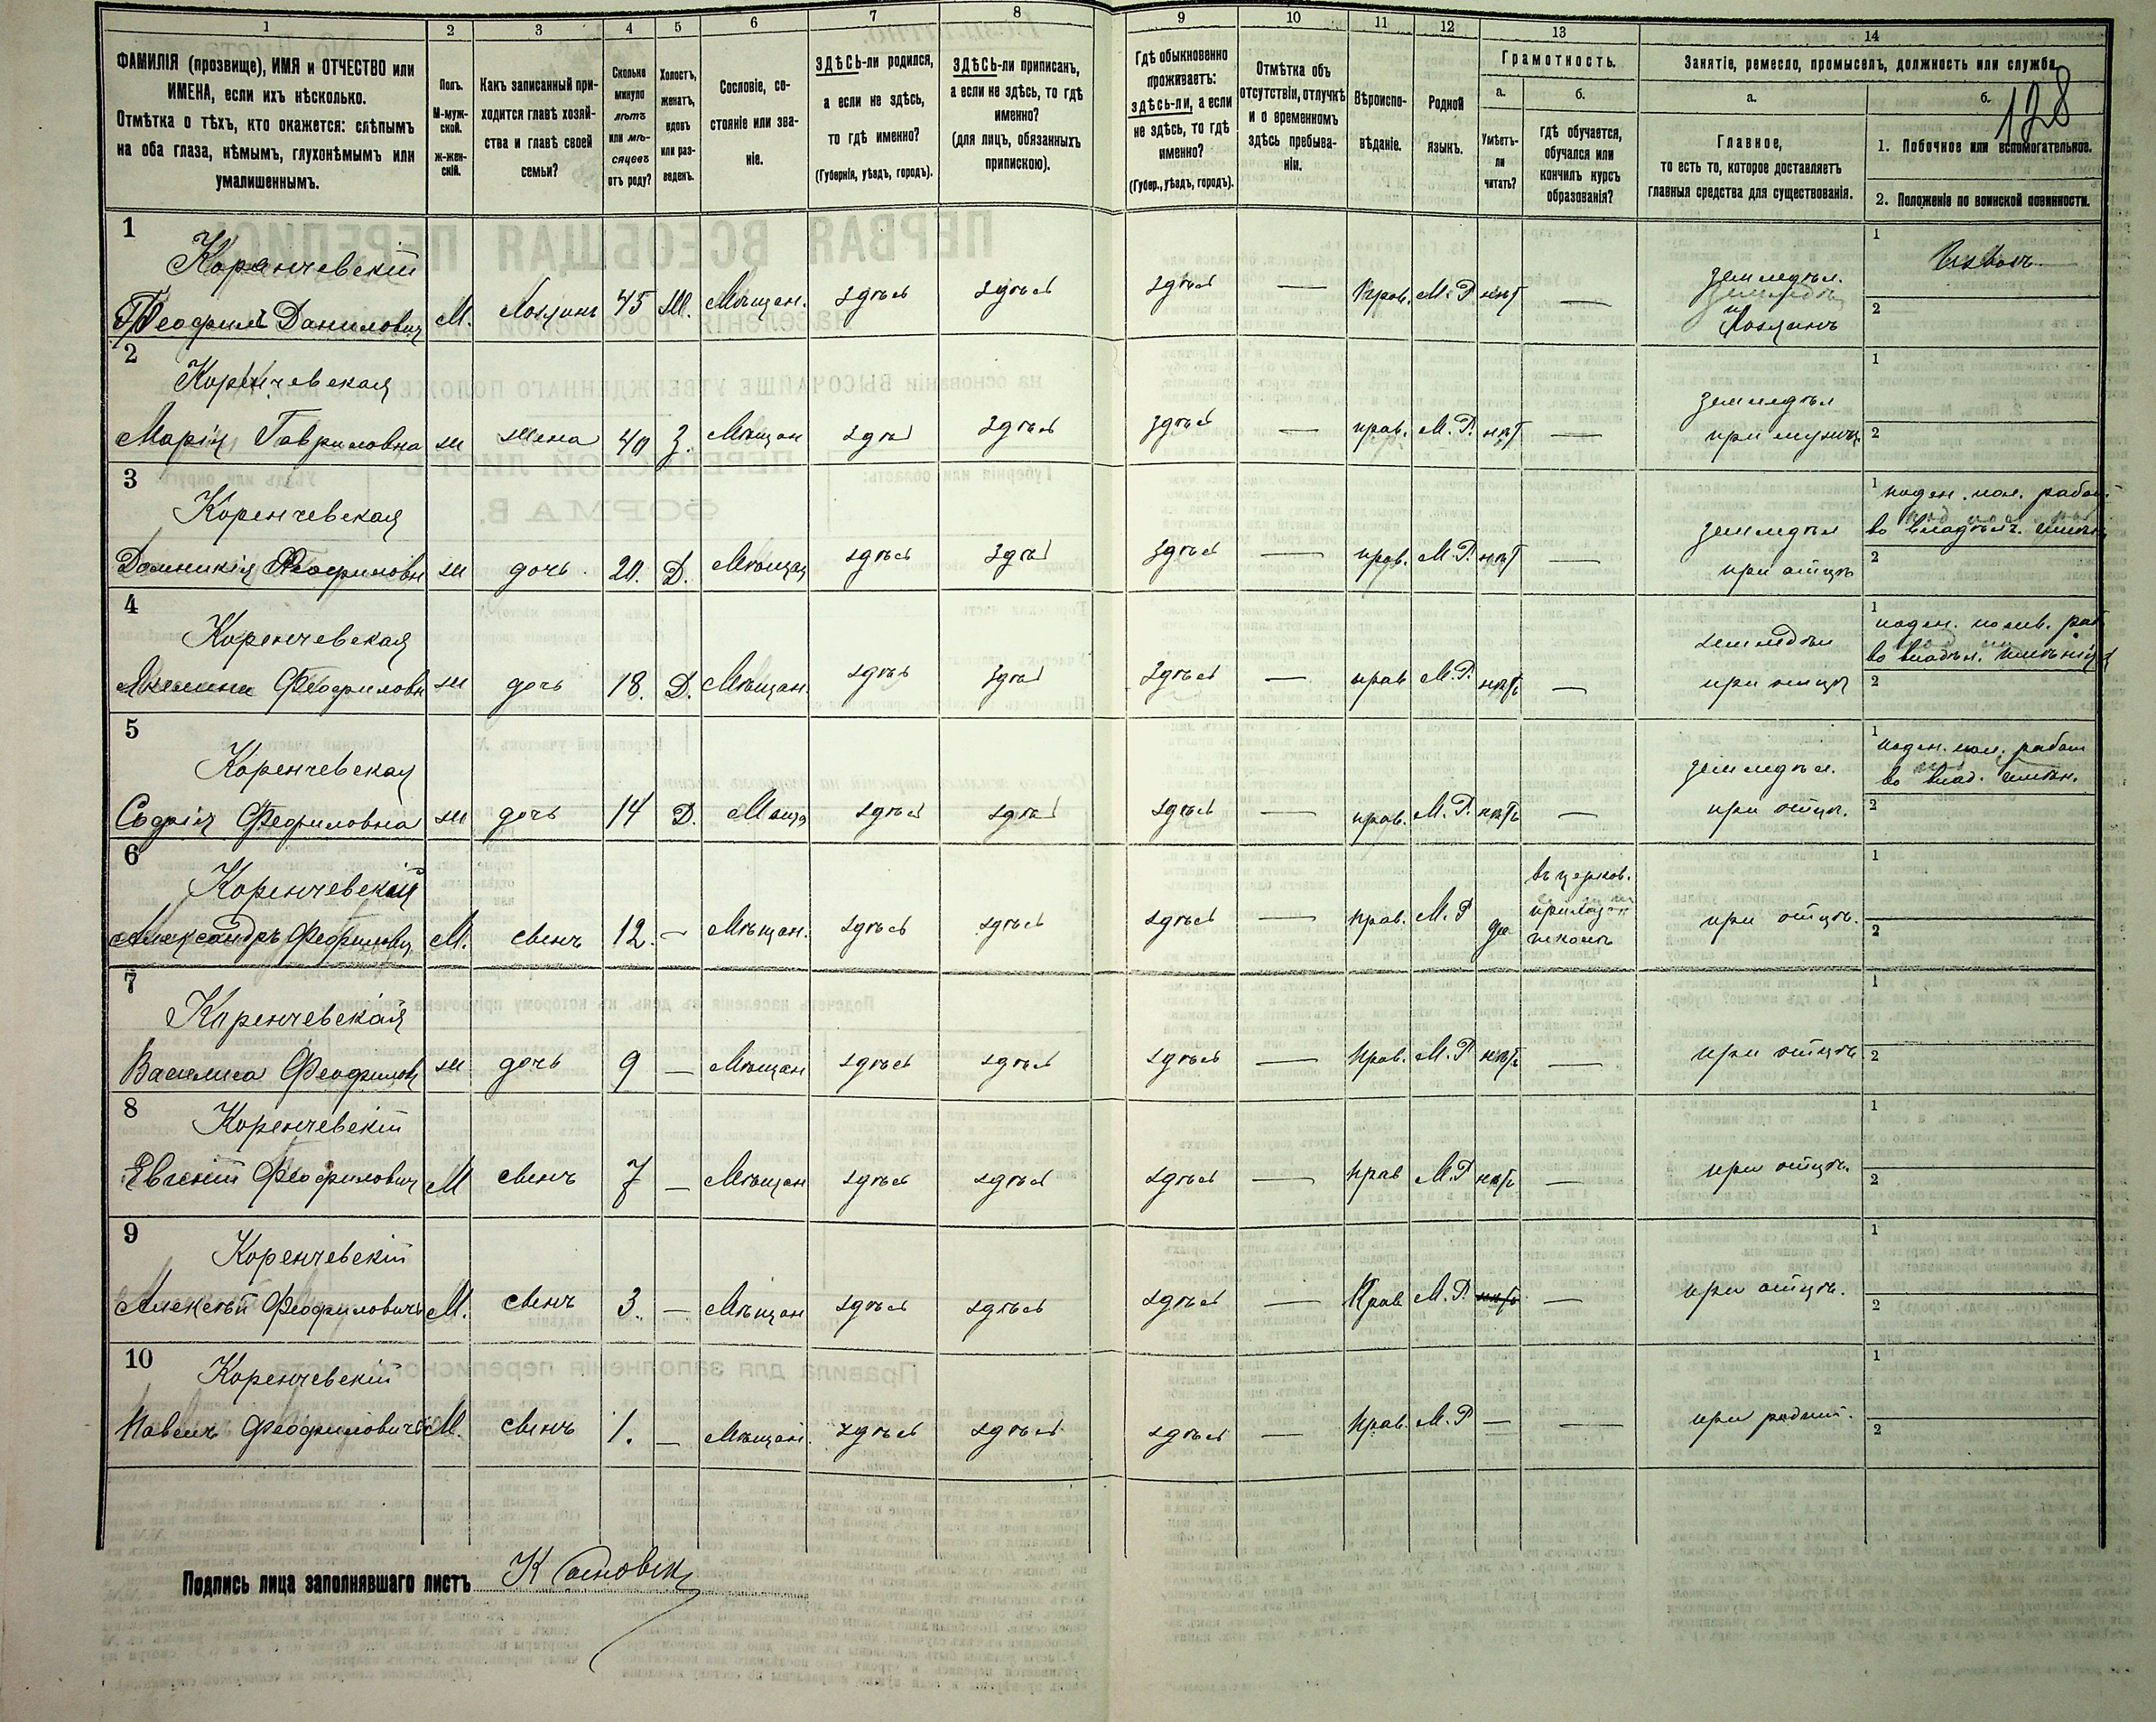 1 2 3 4 5 6 7 8 9 10 11 12 13 14
ФАМИЛІЯ (прозвище), ИМЯ и ОТЧЕСТВО или
ИМЕНА, если ихъ нѣсколько.
Отмѣтка о тѣхъ, кто окажется: слѣпымъ
на оба глаза, нѣмымъ, глухонѣмымъ или
умалишеннымъ.
Полъ.
М-муж-
ской.
Ж-жен-
скій.
Какъ записанный при-
ходится главѣ хозяй-
ства и главѣ своей
семьи?
Сколько
минуло
лѣтъ
или мѣ-
сяцевъ
отъ роду?
Холостъ,
женатъ,
вдовъ
или раз-
веденъ.
Сословіе, со-
стояніе или зва-
ніе.
ЗДѢСЬ-ли родился,
а если не здѣсь,
то гдѣ именно?
(Губернія, уѣздъ, городъ).
ЗДѢСЬ-ли приписанъ,
а если не здѣсь, то гдѣ
именно?
(для лицъ, обязанныхъ
припискою).
Гдѣ обыкновенно
проживаетъ:
здѣсь-ли, а если
не здѣсь, то гдѣ
именно?
(Губер., уѣздъ, городъ).
Отмѣтка объ
отсутствіи, отлучкѣ
и о временномъ
здѣсь пребыва-
ніи.
Вѣроиспо-
вѣданіе.
Родной
языкъ.
Грамотность.
а.
Умѣетъ-
ли
читать?
б.
гдѣ обучается,
обучался или
кончилъ курсъ
образованія?
Занятіе, ремесло, промыселъ, должность или служба.
а.
Главное,
то есть то, которое доставляетъ
главныя средства для существованія.
б.
128
1. Побочное или вспомогательное.
2. Положеніе по воинской повинности.
1
Коренчевскій
Феофилъ Даниловичъ М. Хозяинъ 45 Ж. Мѣщан. здѣсь здѣсь здѣсь — Прав. М. Р. нѣт —
земледѣл.
Хозяинъ
1 Извозъ
2
2
Коренчевская
Марія Гавриловна ж жена 40 З. Мѣщан здѣсь здѣсь здѣсь — прав. М. Р. нѣт —
земледѣл
при мужѣ
1
2
3
Коренчевская
Домникія Феофиловн ж дочь 20. Д. Мѣщан здѣсь здѣсь здѣсь — прав. М. Р. нѣт —
земледѣл
при отцѣ
1 поден. пол. работ
во владѣльч. имѣн
2
4
Коренчевская
Феофиловн ж дочь 18. Д. Мѣщан. здѣсь здѣсь здѣсь — прав М. Р. нѣтъ —
земледѣл
при отцѣ
1 поден. полев. раб
во владѣл. имѣнія
2
5
Коренчевская
Софія Феофиловна ж дочь 14 Д. Мѣща здѣсь здѣсь здѣсь — прав. М. Р. нѣтъ —
земледѣл.
при отцѣ.
1 поден. пол. работ
во влад. имѣн.
2
6
Коренчевскій
Александръ Феофиловч М. сынъ 12. — Мѣщан. здѣсь здѣсь здѣсь — прав. М. Р да
въ церков.
приходск
школѣ
при отцѣ.
1
2
7
Коренчевская
Василиса Феофилов ж дочь 9 — Мѣщан здѣсь здѣсь здѣсь — Прав. М. Р нѣтъ — при отцѣ
1
2
8
Коренчевскій
Евгеній Феофилович М сынъ 7 — Мѣщан здѣсь здѣсь здѣсь — прав М. Р нѣтъ — при отцѣ.
1
2
9
Коренчевскій
Алексѣй Феофиловичъ М. сынъ 3. — Мѣщан здѣсь здѣсь здѣсь — Прав М. Р. нѣтъ — при отцѣ.
1
2
10
Коренчевскій
Павелъ Феофиловичъ М. сынъ 1. — Мѣщан. здѣсь здѣсь здѣсь — Прав. М. Р — — при родит.
1
2
Подпись лица заполнявшаго листъ